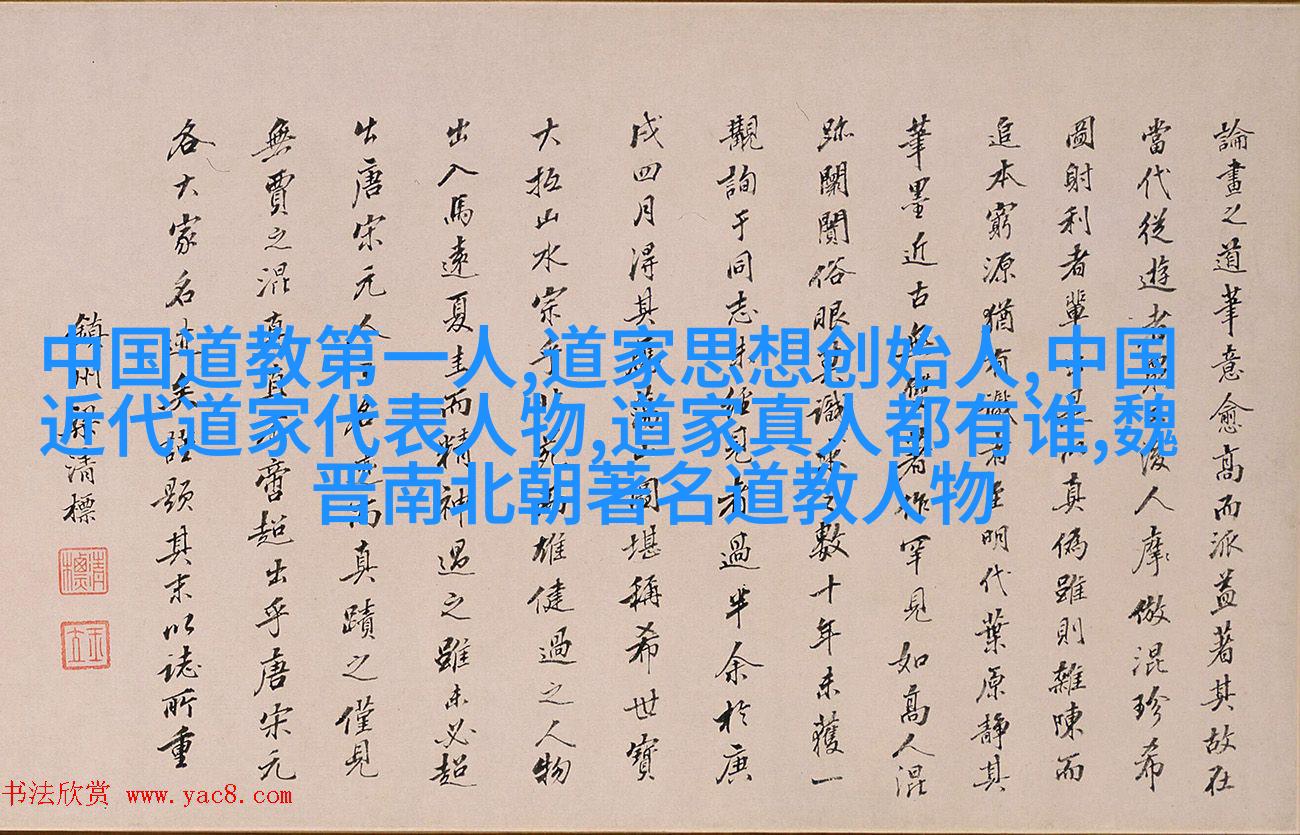 論畫之道筆意愈高而派益著其故在
當代從遊者後人摩倣混珍希
圖射利者輩以真偽雖則雜陳而
追本窮源猶有識者在明代葉原靜其
筆墨近古者作罕見如高人混
跡闤闠俗眼莫識求之數十年未獲一
觀詢于同志未經見者過半余於庚
戌四月得其山圖堪稱希世寶
大抵山水宗乎雄健過之人物
出入馬遠夏圭而精神過之雖未必超
出唐宋元人而真蹟之僅見
無賈之混真嘗超出乎唐宋元
各大家名迹矣題其末以誌所重
鎮州梁清標
清標
中国道教第一人,道家思想创始人,中国
近代道家代表人物,道家真人都有谁,魏
晋南北朝著名道教人物
书法欣赏 www.yac8.com